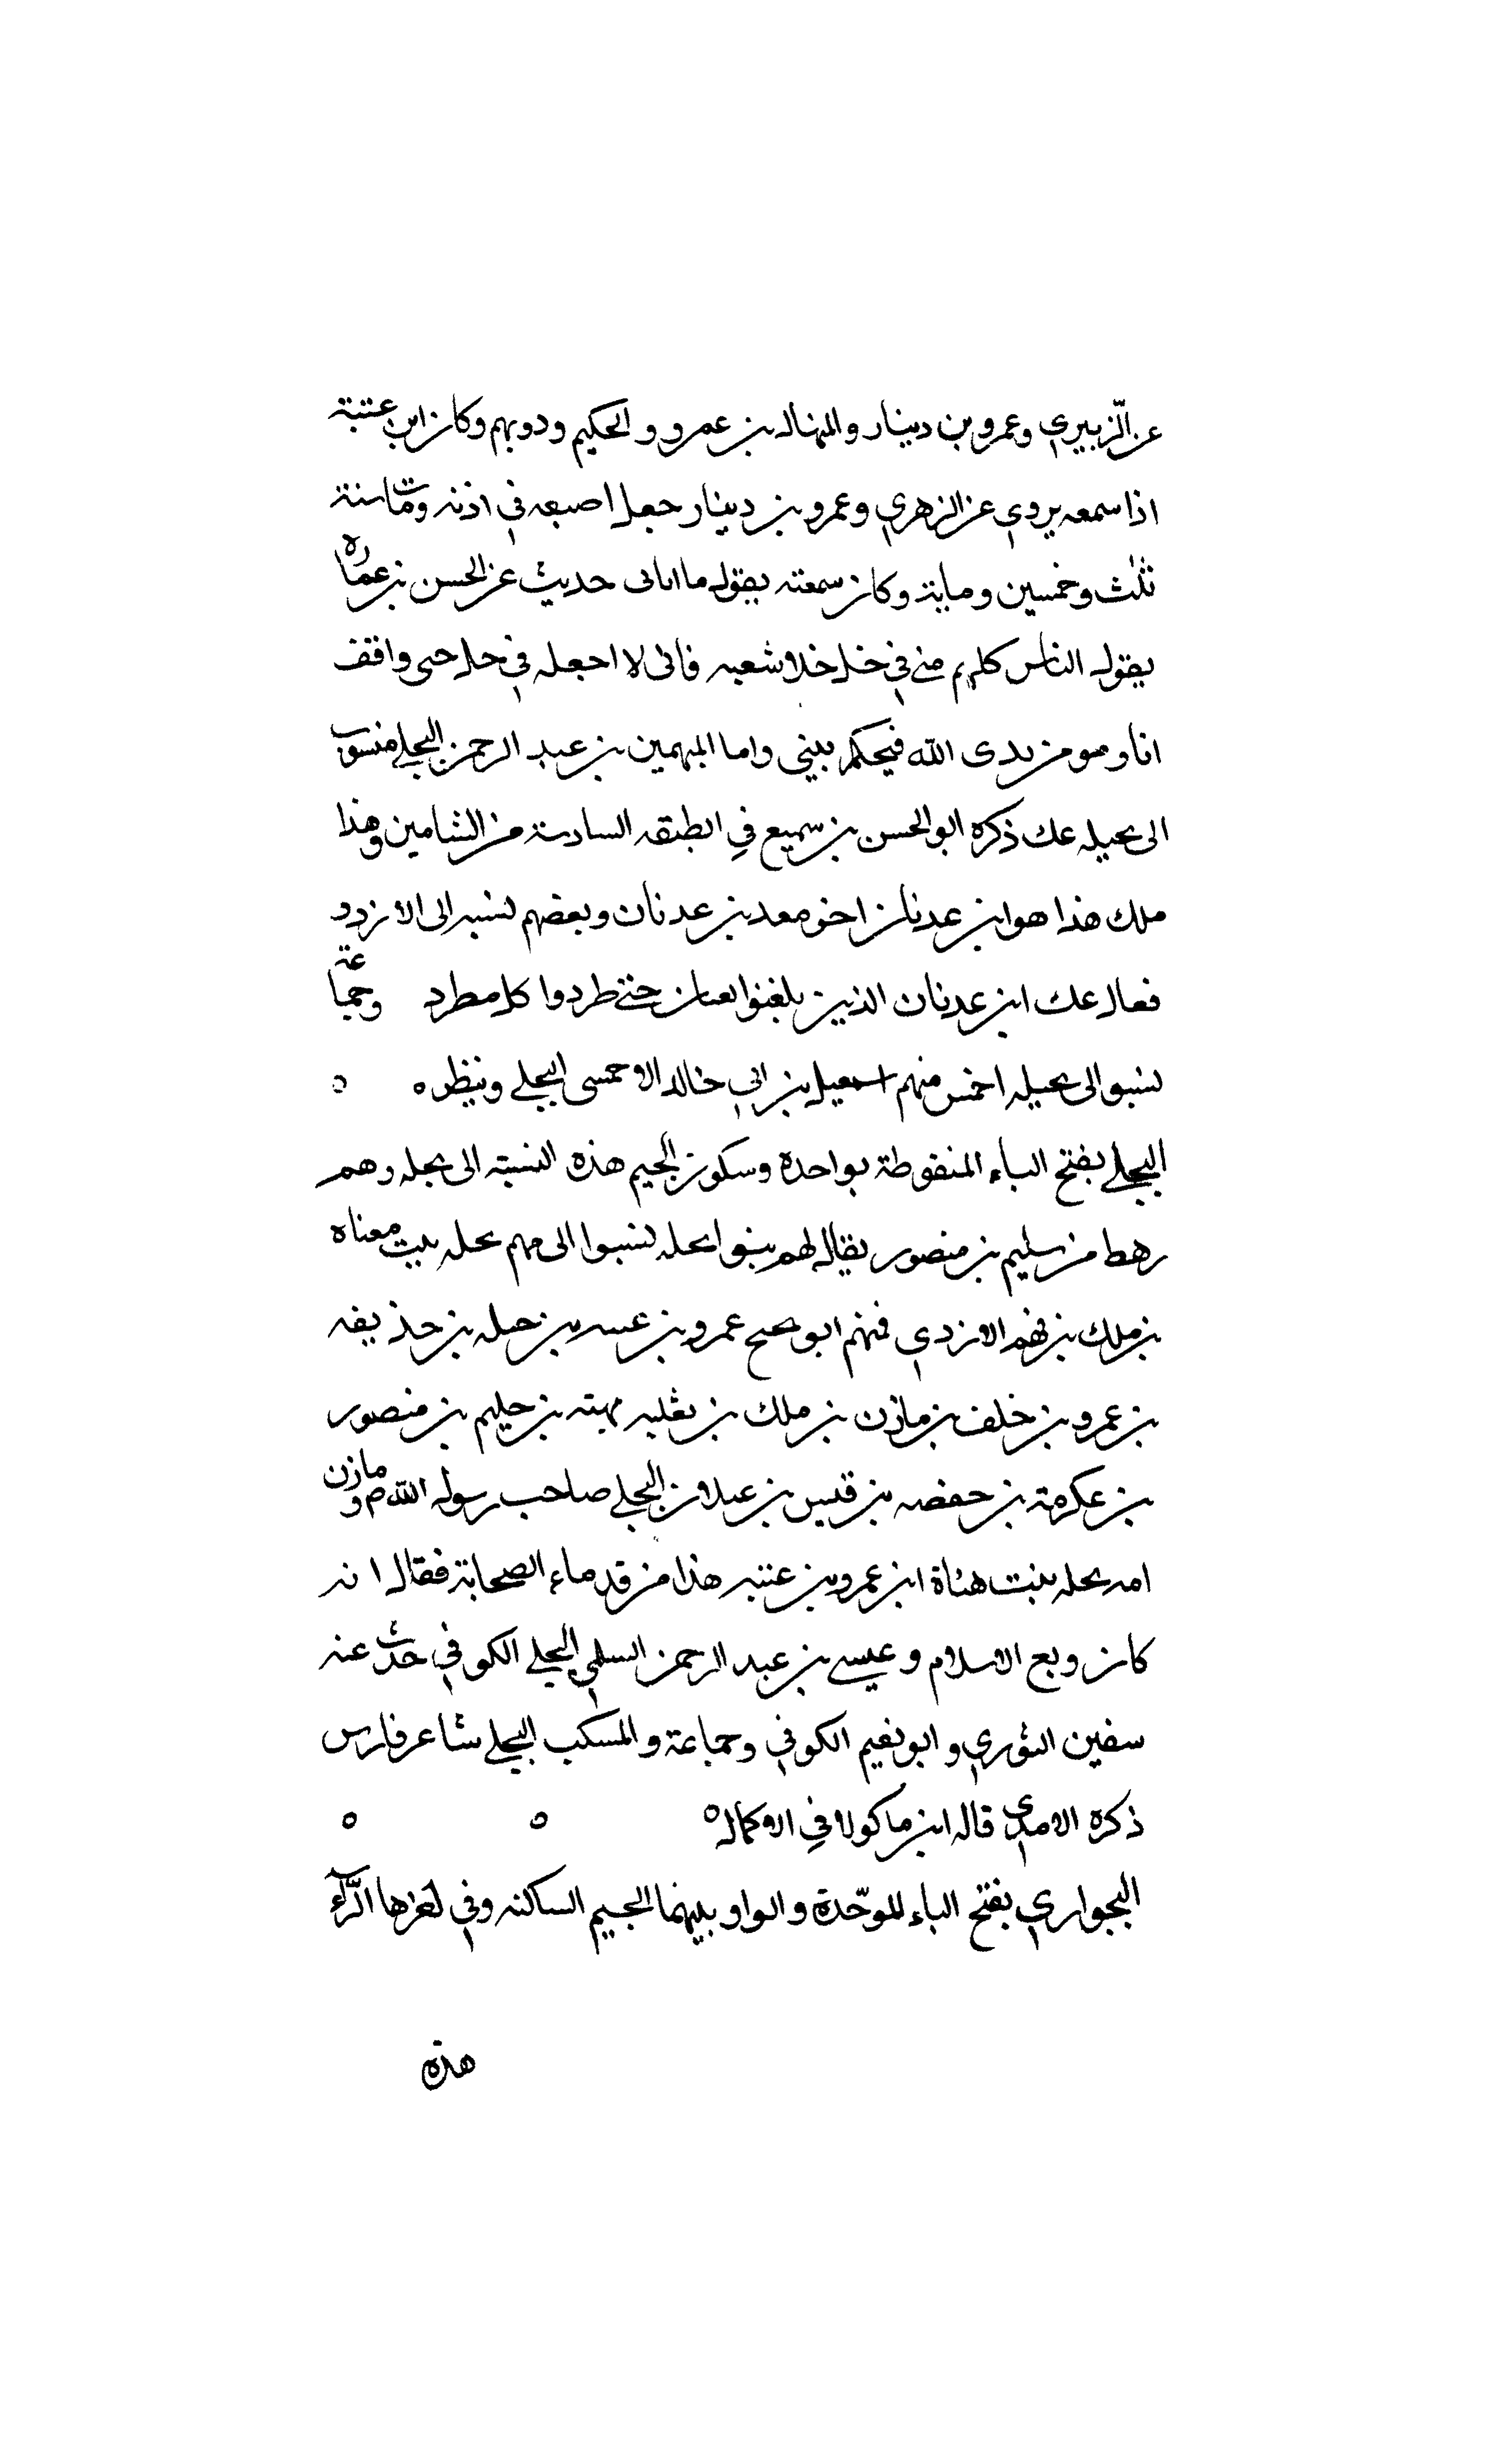 عن الزبيري وعمرو بن دينار والمنهال بن عمرو والحكيم ودوبهم وكان ابن عتبة
اذا سمعه يروي عن الزهري وعمرو بن دينار جعل اصبعه في اذنه ومات سنة
ثلث وخمسين وماية وكان سمعته يقول ما ابالى حديث عن الحسن بن عماره
يقول الناس كلهم منى في خل خلا شعبه فانى لا اجعله في حل حى واقف
انا وهو من يدى الله فيحكم بينى واما المهمين بن عبد الرحمن البجلي منسوب
الى بجيله عك ذكره ابو الحسن بن سميع في الطبقه السادسة من الشامين وهذا
ملك هذا هو ابن عدنان اخو معد بن عدنان وبعضهم نسبه الى الازد و
فعال عك ابن عدنان الذين بلغبوا بعسان حتى طردوا كل مطرد وجماعة
نسبوا الى بجيله اخمس منهم اسمعيل بن ابي خالد الاحمسى البجلي ونيظره ٥
البجلي بفتح الباء المنقوطة بواحدة وسكون الجيم هذه النسبة الى بجله وهم
رهط من سليم بن منصور يقال لهم بنوا بجله نسبوا الى مهم بجله بنت معناه
بن ملك بن فهم الازدي فمنهم ابو نجيح عمرو بن عبسه بن حبله بن حذيفه
بن عمرو بن خلف بن مازن بن ملك بن ثعلبه بهته بن حليم بن منصور
بن عكرمة بن حفصه بن قيس بن عيلان البجلي صاحب رسول الله م ومازن
امه بجله بنت هناة ابن عمرو بن عنبه هذا من قدماء الصحابة فقال انه
كان وبع الاسلام وعيسى بن عبد الرحمن السلمي البجلي الكوفي حدث عنه
سفين الثوري وابو نعيم الكوفي وجماعة والمسكب البجلي شاعر فارس
ذكره الامدى قاله ابن ماكولا في الاكمال ٥ ٥ ٥
البجواري بفتح الباء الموحّدة والواو بينهما الجيم الساكنه وفي اخرها الرّاء
هذه